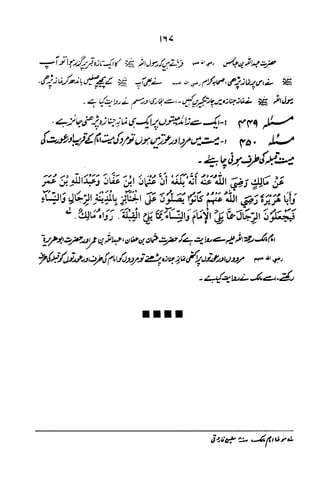 ۱۶۷
حضرت عبداللہ بن عباس رضی اللہ عنہ فرماتے ہیں کہ رسول اللہ ﷺ کا ایک تازہ قبر پر گزر ہوا تو آپ
ﷺ نے اس پر نماز پڑھی، صحابہ کرام رضی اللہ عنہم نے بھی آپ ﷺ کے پیچھے صفیں باندھ کر نماز پڑھی،
رسول اللہ ﷺ نے نماز جنازہ میں چار تکبیریں کہیں۔ اسے بخاری اور مسلم نے روایت کیا ہے۔
مسئلہ ۴۴۹ ۔ ایک سے زائد میتوں پر ایک ہی نماز جنازہ پڑھنی جائز ہے۔
مسئلہ ۴۵۰ ۔ میت میں مرد اور عورتیں ہوں تو مرد کی میت امام کے قریب اور عورت کی
میت قبلہ کی طرف ہونی چاہئے۔
عَنْ مَالِكٍ رَضِيَ اللّٰهُ عَنْهُ أَنَّهُ بَلَغَهُ أَنَّ عُثْمَانَ ابْنَ عَفَّانَ وَعَبْدَاللّٰهِ بْنَ عُمَرَ
وَأَبَا هُرَيْرَةَ رَضِيَ اللّٰهُ عَنْهُمْ كَانُوْا يُصَلُّوْنَ عَلَى الْجَنَائِزِ بِالْمَدِيْنَةِ الرِّجَالِ وَالنِّسَاءِ
فَيَجْعَلُوْنَ الرِّجَالَ مِمَّا يَلِي الْإِمَامَ وَالنِّسَاءَ مِمَّا يَلِي الْقِبْلَةَ . رَوَاهُ مَالِكٌ
امام مالک رحمۃ اللہ علیہ سے روایت ہے کہ حضرت عثمان بن عفان، عبداللہ بن عمر اور حضرت ابو ہریرہ
رضی اللہ عنہم مردوں اور عورتوں پر اکٹھی نماز جنازہ پڑھتے تو مردوں کو امام کی طرف اور عورتوں کو قبلہ کی طرف
رکھتے۔ اسے مالک نے روایت کیا ہے۔
موطا امام مالک